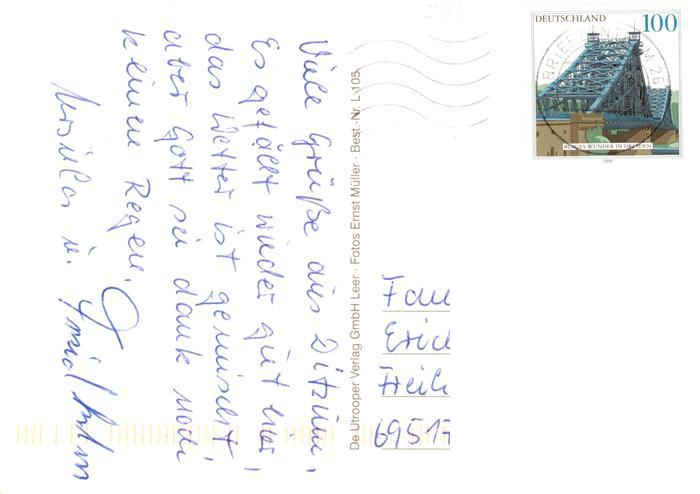 Viele Grüße aus Ditzum,
Es gefällt wieder gut hier,
das Wetter ist gemischt,
aber Gott sei dank noch
keinen Regen.
Ursula u.
De Utrooper Verlag GmbH Leer · Fotos Ernst Müller · Best.-Nr. L 105
DEUTSCHLAND 100
BRIEFZENTRUM 26
BLAUES WUNDER IN DRESDEN
2000
Fam
Eric
Freih
69517